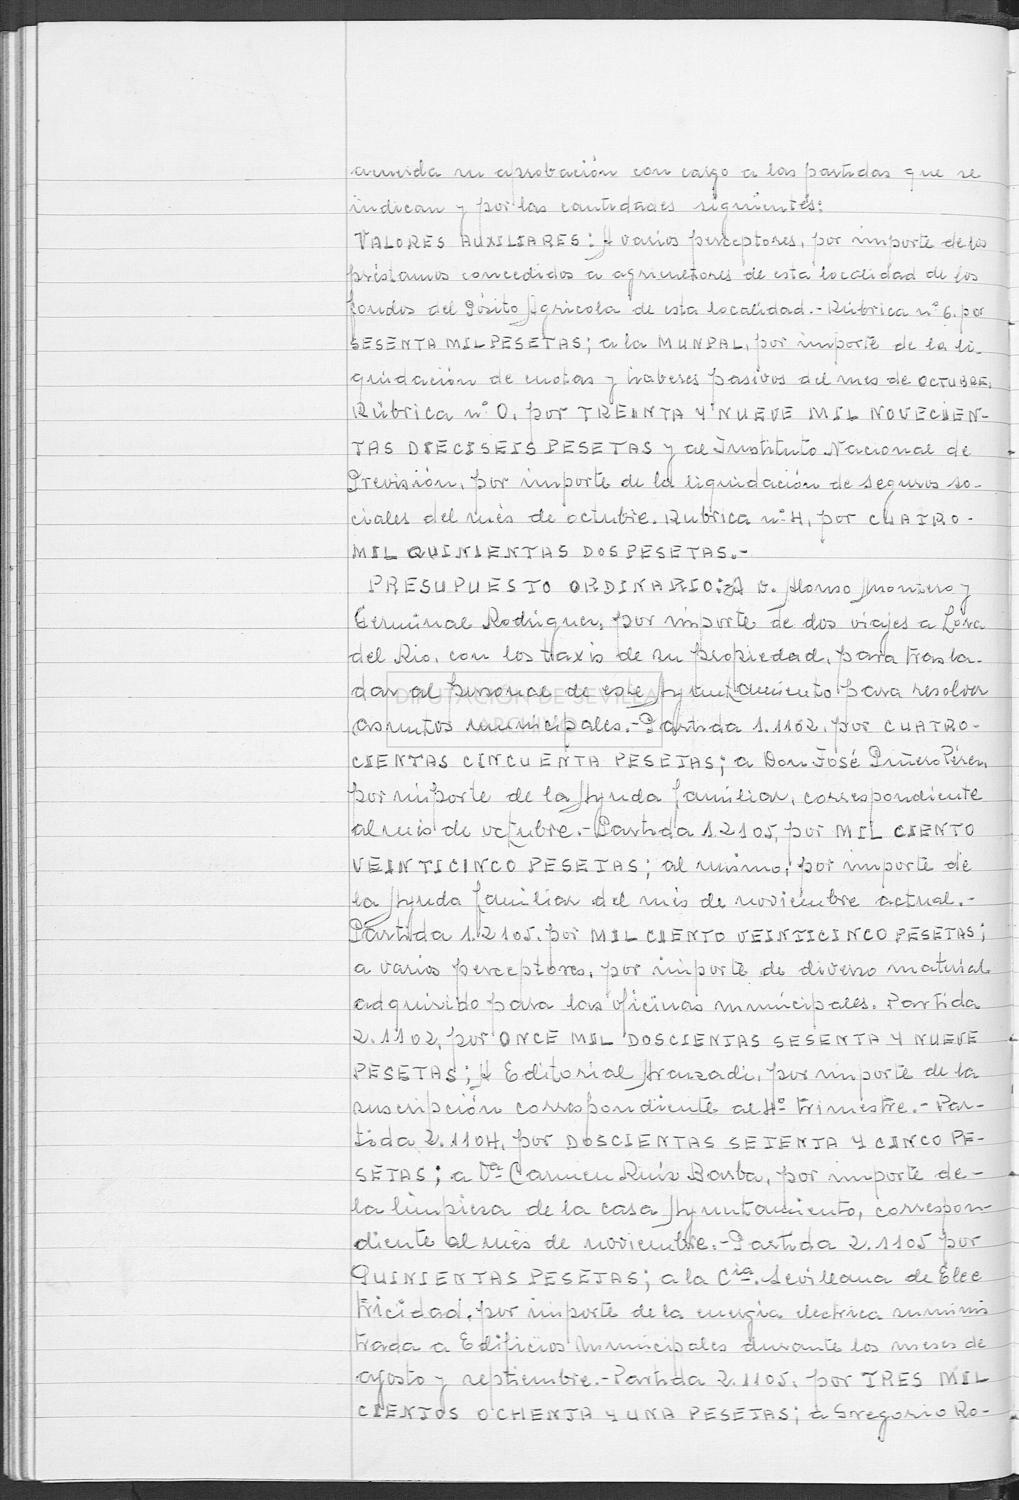 acuerda su aprobación con cargo a las partidas que se
indican y por las cantidades siguientes:
VALORES AUXILIARES: A varios perceptores, por importe de los
préstamos concedidos a agricultores de esta localidad de los
fondos del Pósito Agrícola de esta localidad.- Rúbrica nº 6. por
SESENTA MIL PESETAS; a la MUNPAL, por importe de la li-
quidación de cuotas y haberes pasivos del mes de OCTUBRE.
Rúbrica nº 0, por TREINTA Y NUEVE MIL NOVECIEN-
TAS DIECISEIS PESETAS y al Instituto Nacional de
Previsión, por importe de la liquidación de seguros so-
ciales del més de octubre. Rubrica nº 4, por CUATRO-
MIL QUINIENTAS DOS PESETAS.-
PRESUPUESTO ORDINARIO: A D. Alonso Montero y
Germinal Rodriguez, por importe de dos viajes a Lora
del Rio, con los taxis de su propiedad, para trasla-
dar al personal de este Ayuntamiento para resolver
asuntos municipales.- Partida 1.1102, por CUATRO-
CIENTAS CINCUENTA PESETAS; a Don José Piñero Pérez,
por importe de la Ayuda familiar, correspondiente
al més de octubre.- Partida 1.2105, por MIL CIENTO
VEINTICINCO PESETAS; al mismo, por importe de
la Ayuda familiar del més de noviembre actual.-
Partida 1.2105. por MIL CIENTO VEINTICINCO PESETAS;
a varios perceptores, por importe de diverso material
adquirido para las oficinas municipales. Partida
2.1102, por ONCE MIL DOSCIENTAS SESENTA Y NUEVE
PESETAS; A Editorial Aranzadi, por importe de la
suscripción correspondiente al 4º trimestre.- Par-
tida 2.1104, por DOSCIENTAS SETENTA Y CINCO PE-
SETAS; a Dª Carmen Ruiz Barba, por importe de-
la limpieza de la casa Ayuntamiento, correspon-
diente al més de noviembre.- Partida 2.1105 por
QUINIENTAS PESETAS; a la Cía. Sevillana de Elec
tricidad. por importe de la energía electrica suminis
trada a Edificios Municipales durante los meses de
agosto y septiembre.- Partida 2.1105, por TRES MIL
CIENTOS OCHENTA Y UNA PESETAS; a Gregorio Ro-
DIPUTACIÓN DE SEVILLA
ARCHIVO